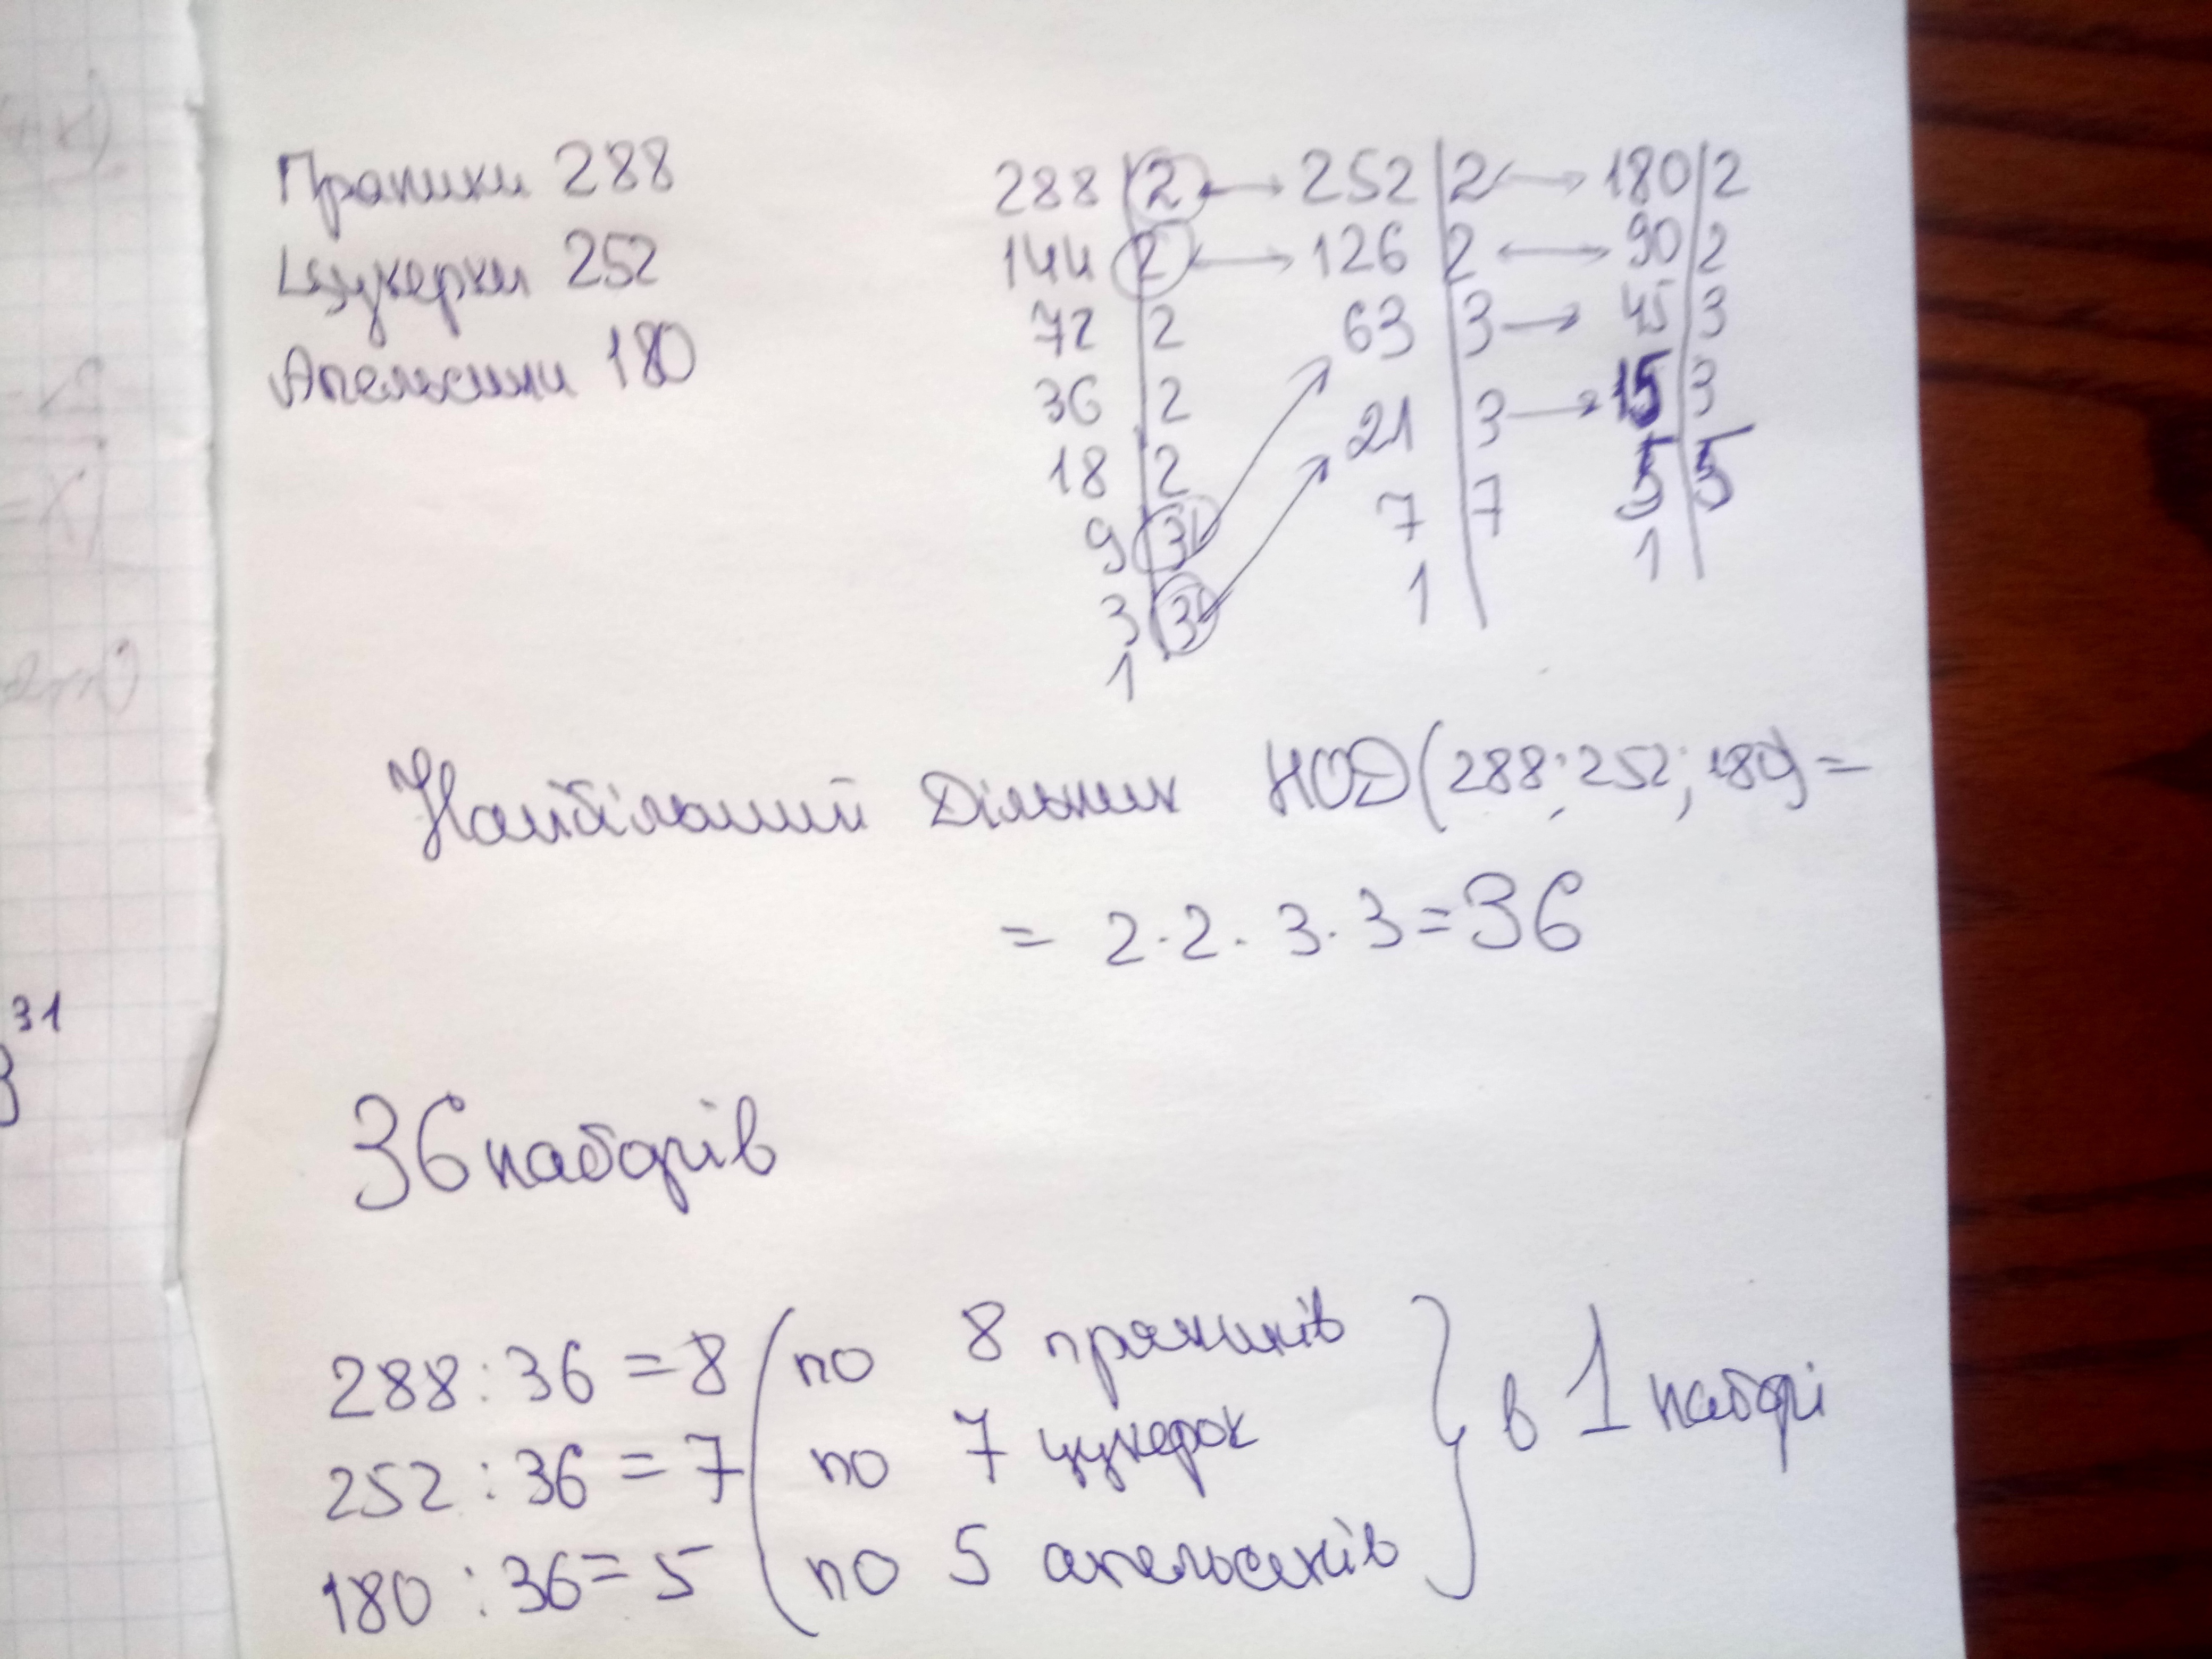 Пряники 288
Цукерки 252
Апельсини 180
288 | 2 ⟷ 252 | 2 → 180 | 2
144 | 2 ⟷ 126 | 2 ⟷ 90 | 2
72 | 2 63 | 3 → 45 | 3
36 | 2 21 | 3 → 15 | 3
18 | 2 7 | 7 5 | 5
9 | 3 1 1
3 | 3
1
Найбільший Дільник НОД(288; 252; 180) =
= 2·2·3·3=36
31
36 наборів
288 : 36 = 8 ( по 8 пряників
252 : 36 = 7 по 7 цукерок } в 1 наборі
180 : 36 = 5 по 5 апельсинів